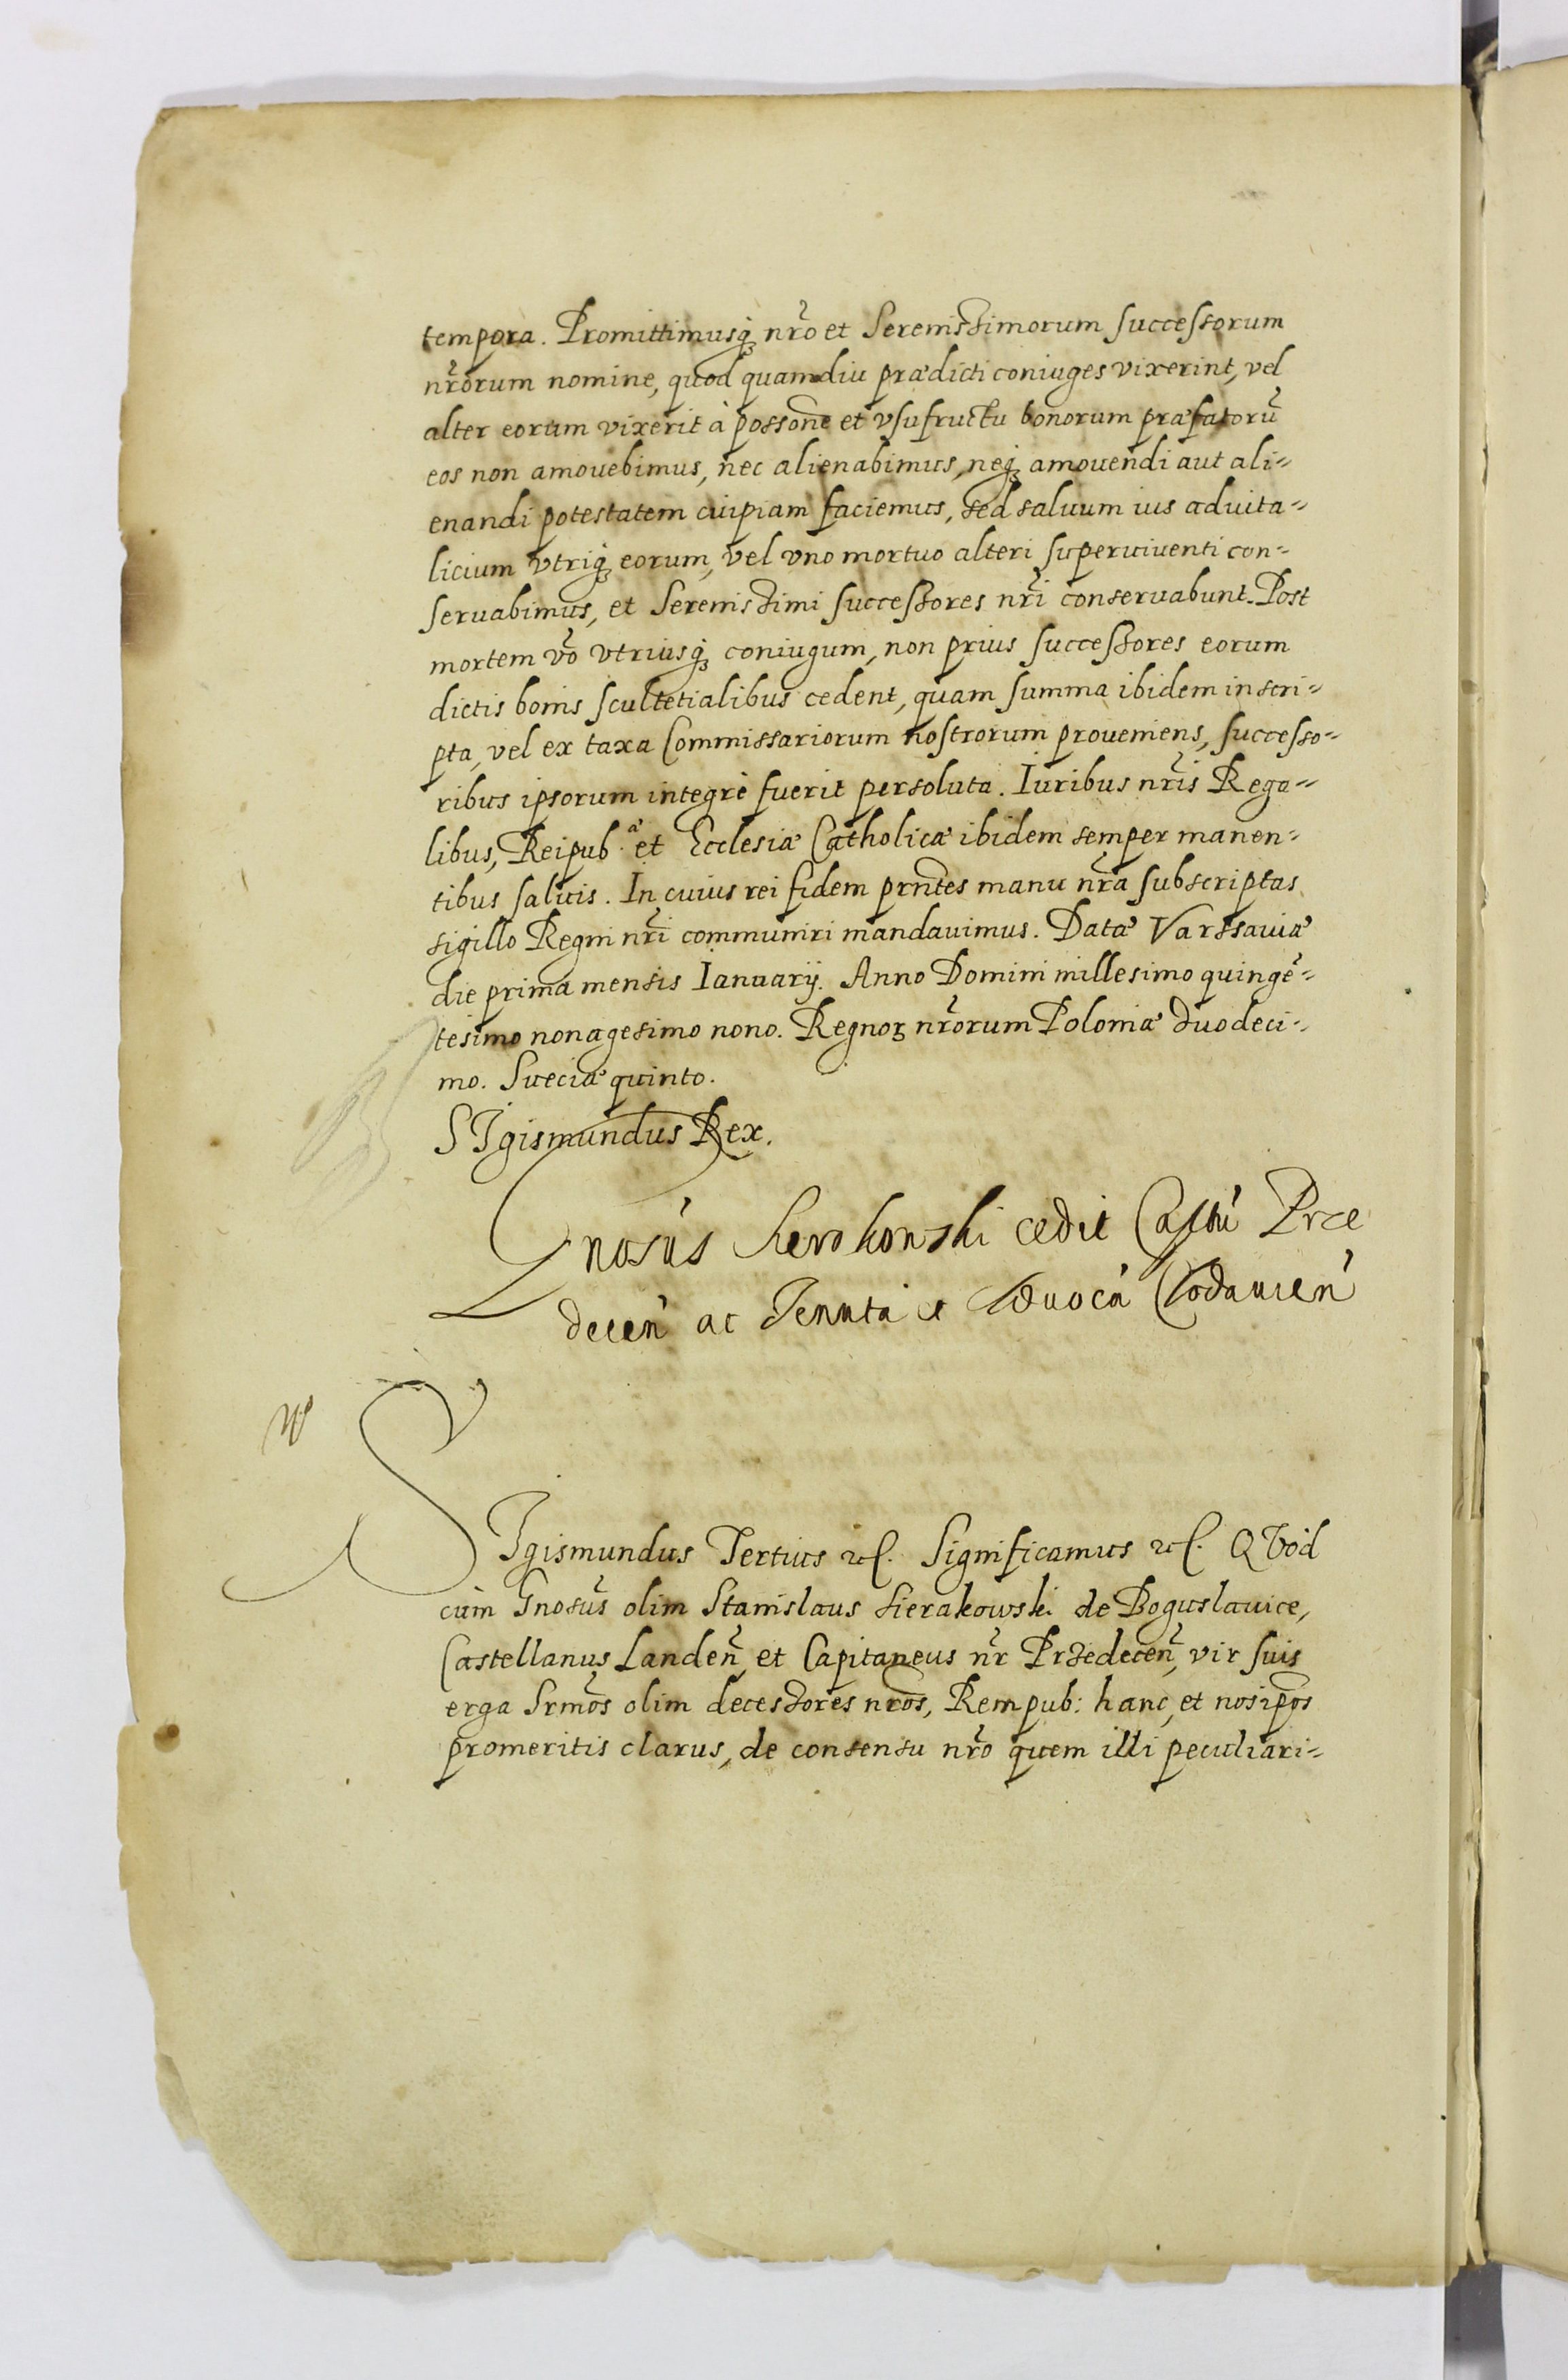 tempora. Promittimusq́ꝫ nr̃o et Serenissimorum successorum
nr̃orum nomine, quod quamdiu prædicti coniuges vixerint, vel
alter eorum vixerit à possone et vsufructu bonorum præfatorũ
eos non amovebimus, nec alienabimus, neq́ꝫ amovendi aut ali=
enandi potestatem cuipiam faciemus, sed saluum ius aduita=
licium vtriq́ꝫ eorum, vel vno mortuo alteri superuiventi con=
servabimus, et Serenissimi successores nr̃i conservabunt. Post
mortem võ vtriusq́ꝫ coniugum, non prius successores eorum
dictis bonis scultetialibus cedent, quam summa ibidem inscri=
pta, vel ex taxa Commissariorum nostrorum proveniens, successo=
ribus ipsorum integrè fuerit persoluta. Iuribus nr̃is Rega=
libus, Reipub.ᵃ et Ecclesiæ Catholicæ ibidem semper manen=
tibus salvis. In cuius rei fidem prñtes manu nr̃a subscriptas
sigillo Regni nr̃i communiri mandavimus. Datæ Varssaviæ
die prima mensis Ianuarij. Anno Domini millesimo quingẽ=
tesimo nonagesimo nono. Regnoꝝ nr̃orum Poloniæ duodeci=
mo. Sueciæ quinto.
SIgismundus Rex.
Gnosus Serokonski cedit Castũ Prze
decen̉ ac Tenuta et Aduocã Clodauien̉
SIgismundus Tertius ꝛcꝭ. Significamus ꝛcꝭ. QVod
cùm Gnosũs olim Stanislaus Sierakowski de Boguslavice,
Castellanus Landen̉, et Capitaneus nr̃ Przedecen̉, vir suis
erga Srmõs olim decessores nr̃os, Rempub: hanc, et nos ip̃os
promeritis clarus, de consensu nr̃o quem illi peculiari=